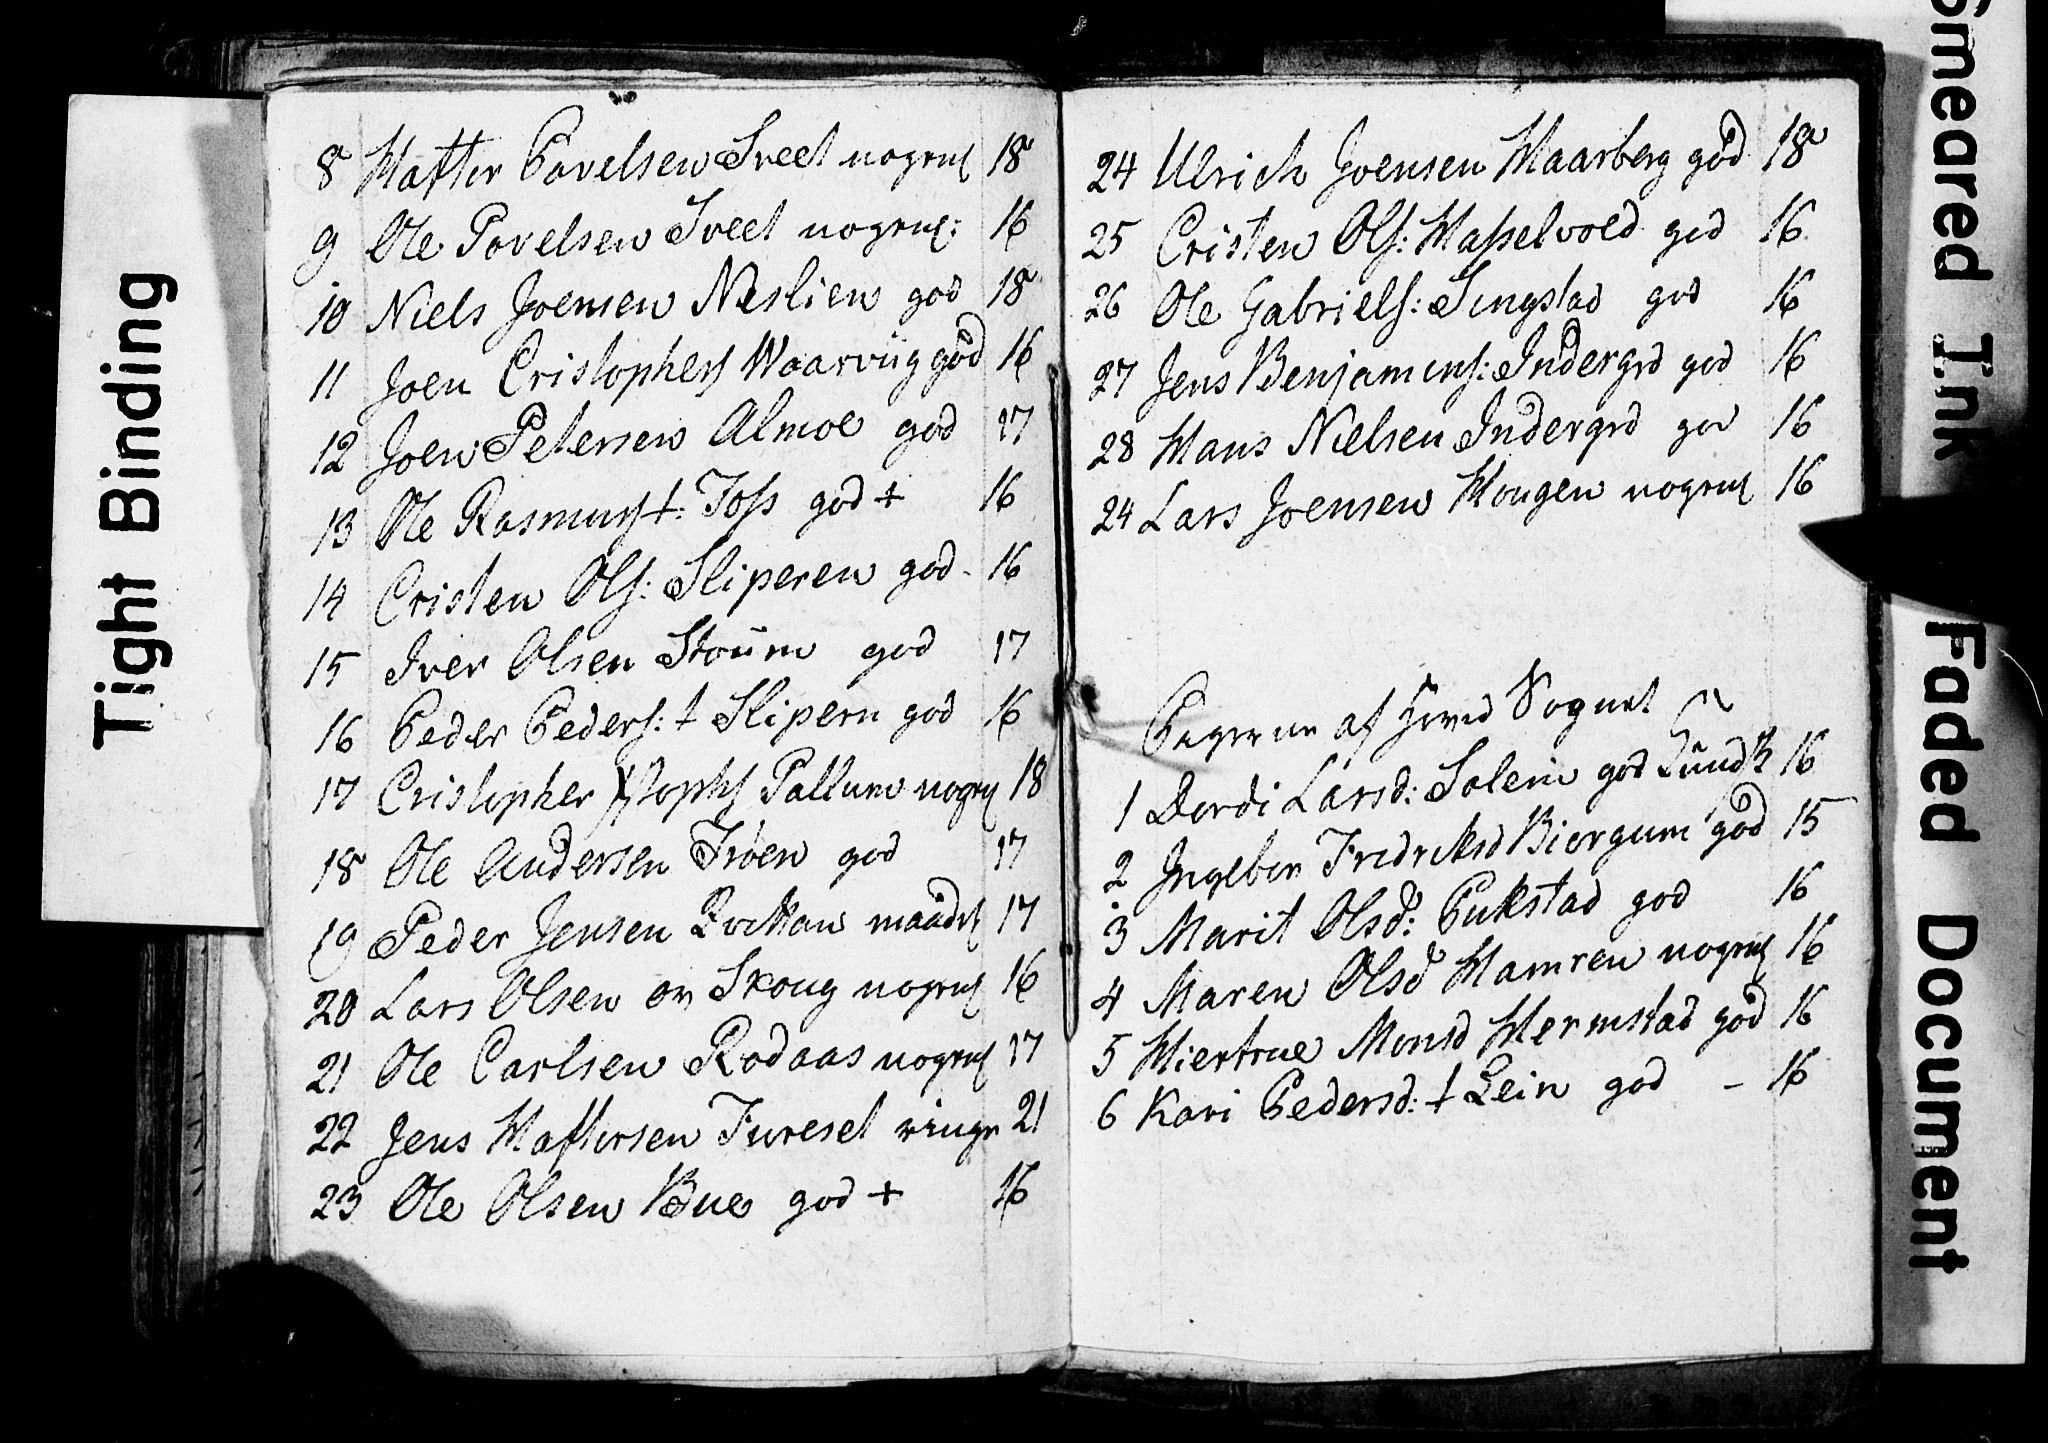 8 Hafter Povelsen Sveet nogenl 18
9 Ole Povelsen Sveet nogenl: 16
10 Niels Joensen Neslien god 18
11 Joen Cristophers Waarviig god 16
12 Joen Petersen Almoe god 17
13 Ole Rasmuss †: Foss god + 16
14 Cristen Ols: Sliperen god - 16
15 Iver Olsen Stoüm god 17
16 Peder Peders: † Slipern god 16
17 Cristopher Pallum nogenl 18
18 Ole Andersen Trøen god 17
19 Peder Jensen maadel 17
20 Lars Olsen ov Skoug nogenl 16
21 Ole Carlsen Rodaas nogenl 17
22 Jens Haftorsen Fureset ringe 21
23 Ole Olsen Bue god + 16
24 Ulrich Joensen Haarberg god 18
25 Cristen Ols: Hasselvold god 16
26 Ole Gabriels: Singstad god 16
27 Jens Benjamins: Indergrd god 16
28 Hans Nielsen Indergrd god 16
24 Lars Joensen Hougen nogenl 16
Pigerne af Sognet
1 Dordi Larsd: Solem god 16
2 Ingebor Fredriksd Biergum god 15
3 Marit Olsd: Pukstad god 16
4 Maren Olsd Hamren nogenl 16
5 Hiertrue Monsd Hermstad god 16
6 Kari Pedersd: † Lein god - 16
Tight Binding
Smeared Ink
Faded Document